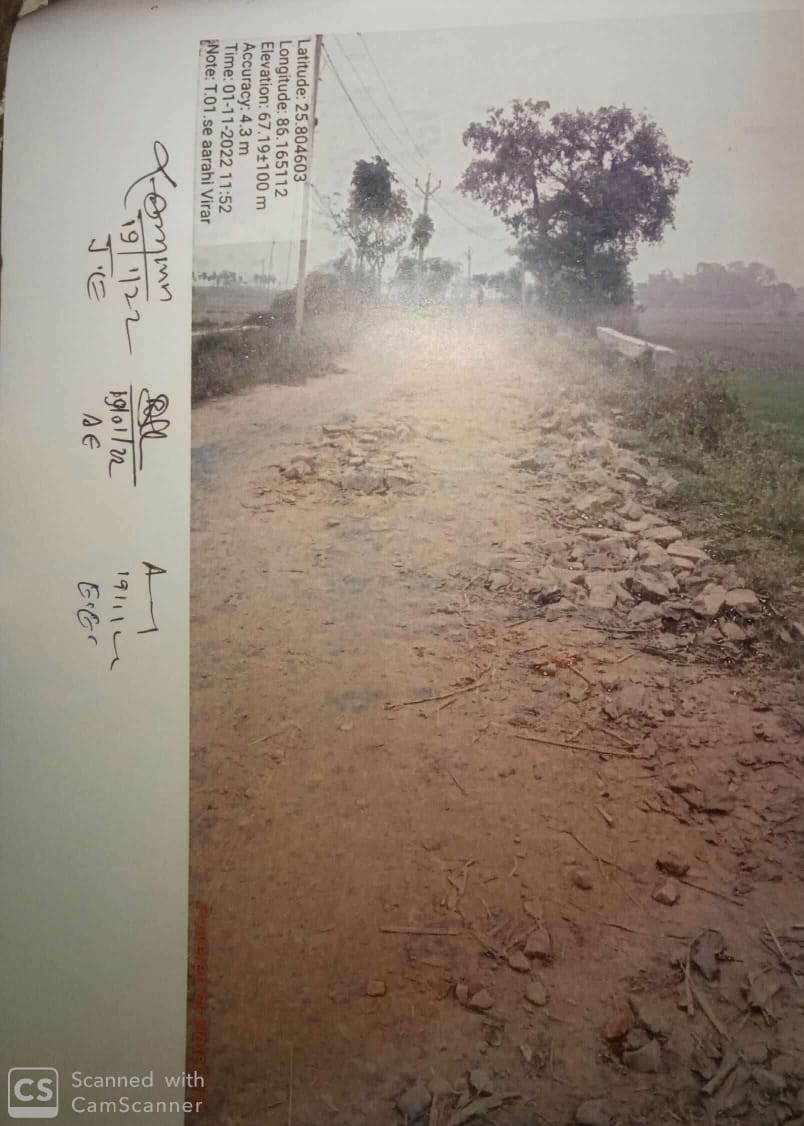 Latitude: 25.804603
Longitude: 86.165112
Elevation: 67.19±100 m
Accuracy: 4.3 m
Time: 01-11-2022 11:52
Note: T.01.se aarahi Virar
19/1/22
J.E
19/01/22
AE
E.E.
Powered by
CS Scanned with
CamScanner